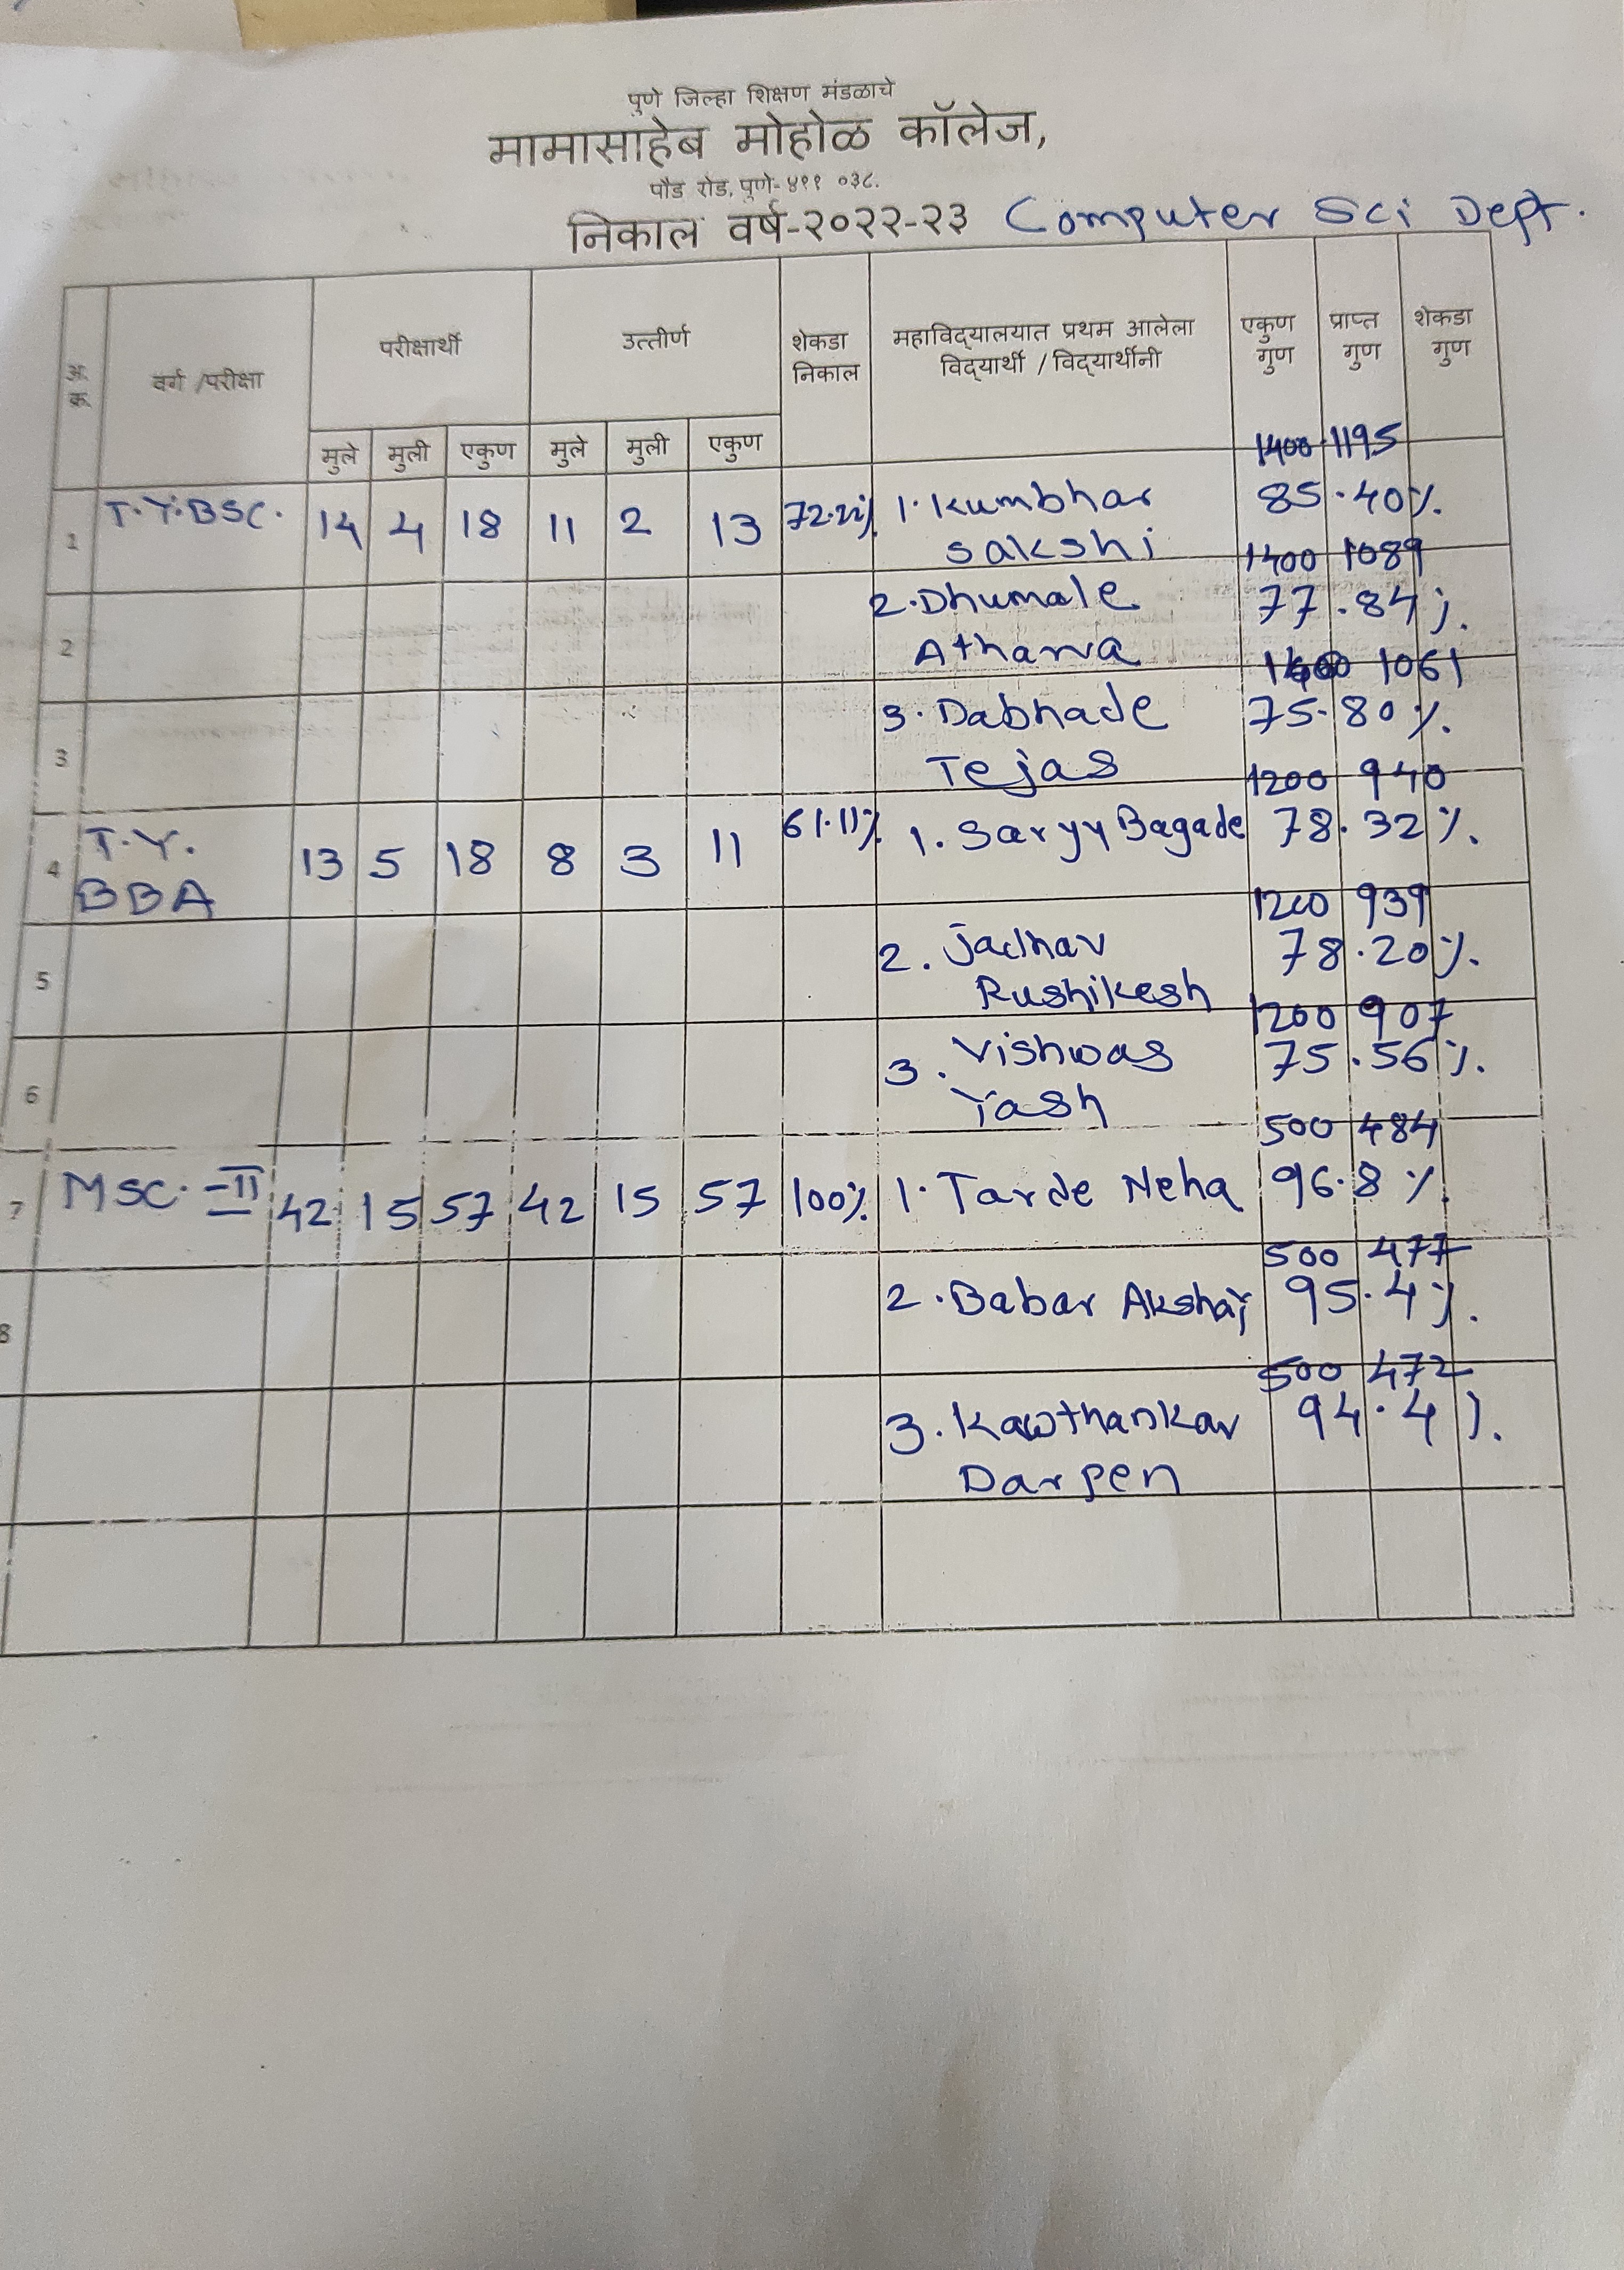 पुणे जिल्हा शिक्षण मंडळाचे
मामासाहेब मोहोळ कॉलेज,
पौड रोड, पुणे-४११ ०३८.
निकाल वर्ष-२०२२-२३ Computer Sci Dept.
अ. क्र. वर्ग /परीक्षा परीक्षार्थी उत्तीर्ण शेकडा निकाल महाविद्यालयात प्रथम आलेला विद्यार्थी / विद्यार्थीनी एकुण गुण प्राप्त गुण शेकडा गुण
मुले मुली एकुण मुले मुली एकुण
1400 1195
1 T.Y.BSC. 14 4 18 11 2 13 72.22% 1. Kumbhar 85.40%.
Sakshi 1400 1089
2 2. Dhumale 77.84%.
Atharva 1400 1061
3 3. Dabhade 75.80%.
Tejas 1200 940
4 T.Y. BBA 13 5 18 8 3 11 61.11% 1. Saryy Bagade 78.32%.
1200 939
5 2. Jadhav 78.20%.
Rushikesh 1200 907
6 3. Vishwas 75.56%.
Yash 500 484
7 MSC.-II 42 15 57 42 15 57 100% 1. Tarde Neha 96.8%.
500 477
8 2. Babar Akshay 95.4%.
500 472
3. Kawthankar 94.4%.
Darpen